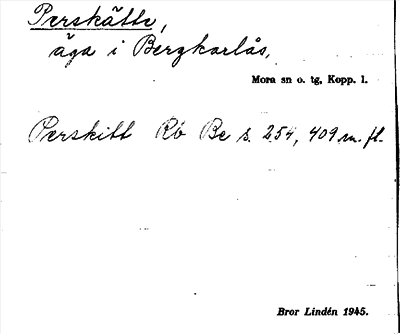 Perskätte,
äga i Bergkarlås,
Mora sn o. tg, Kopp. l.
Perskitt Rö Be s. 254, 409 m. fl.
Bror Lindén 1945.